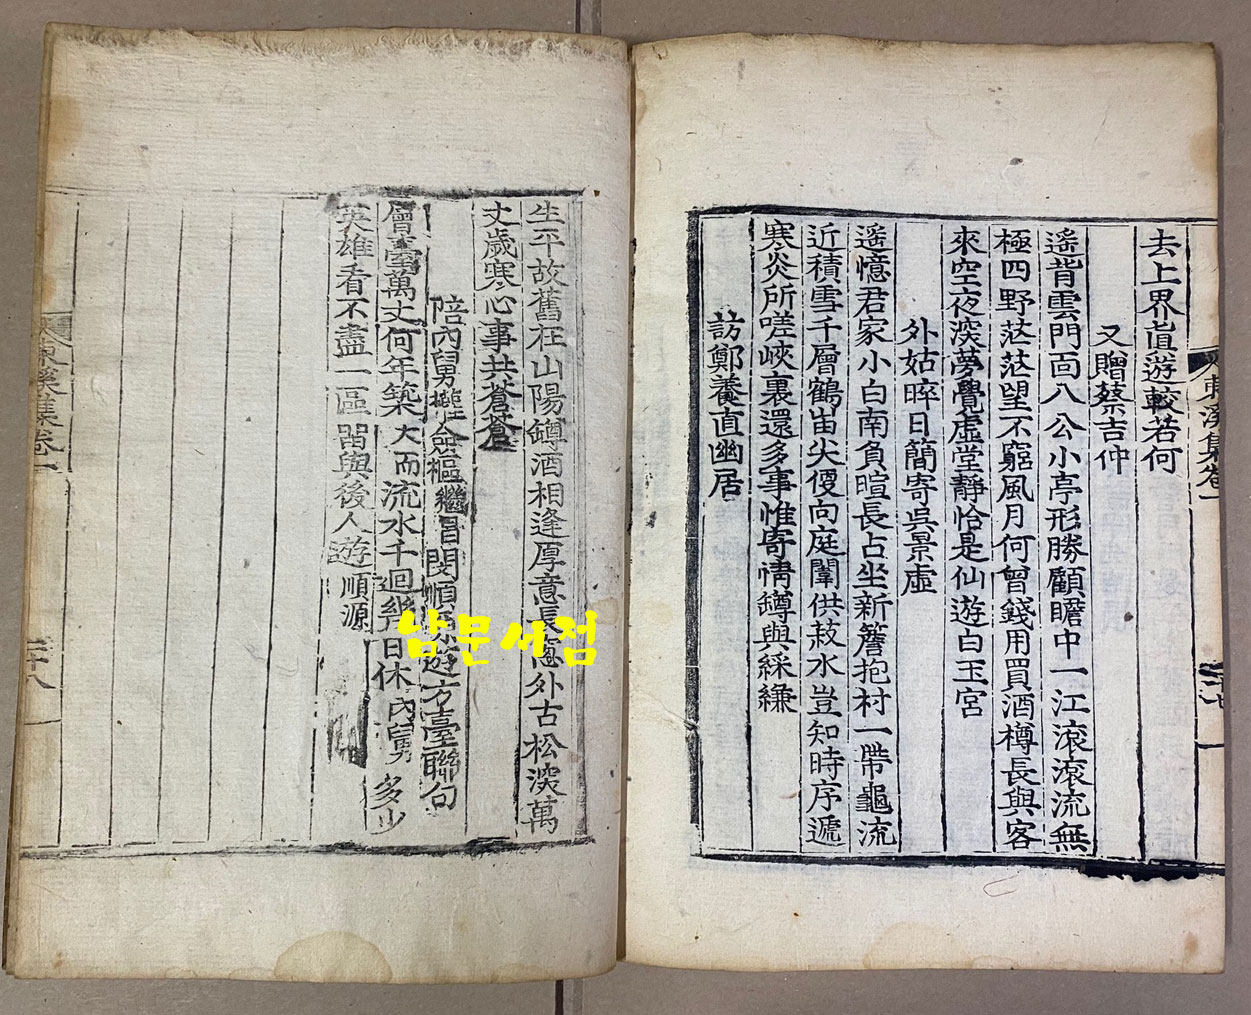 東溪集卷一
去上界眞遊較若何
又贈蔡吉仲
遙背雲門面八公小亭形勝顧瞻中一江滾滾流無
極四野茫茫望不窮風月何曾錢用買酒樽長與客
來空夜深夢覺虛堂靜恰是仙遊白玉宮
外姑晬日簡寄吳景虛
遙憶君家小白南負暄長占坐新簷抱村一帶龜流
近積雪千層鶴岫尖便向庭闈供菽水豈知時序遞
寒炎所嗟峽裏還多事惟寄情罇與綵縑
訪鄭養直幽居
生平故舊在山陽罇酒相逢厚意長窓外古松深萬
丈歲寒心事共蒼蒼
陪內舅
繼昌閔順源遊方臺聯句
層臺萬丈何年築大而流水千迴幾日休內舅多少
英雄看不盡一區留與後人遊順源
東溪集卷一
二十八
남문서점